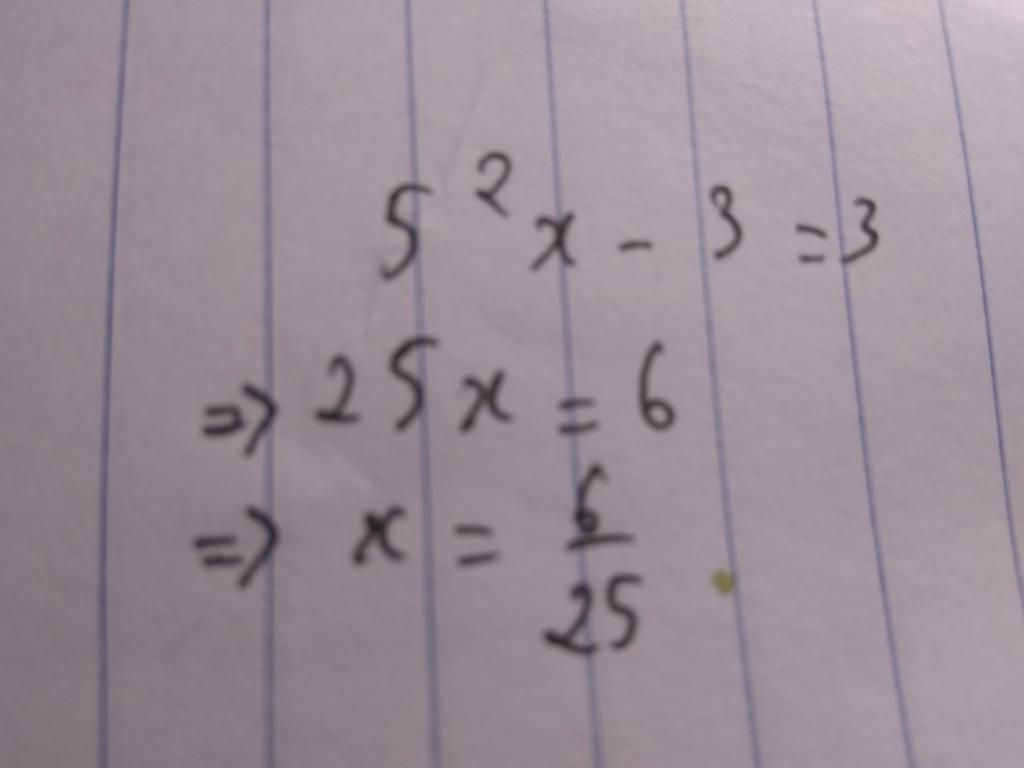 5²x - 3 = 3
=> 25x = 6
=> x = 6/25